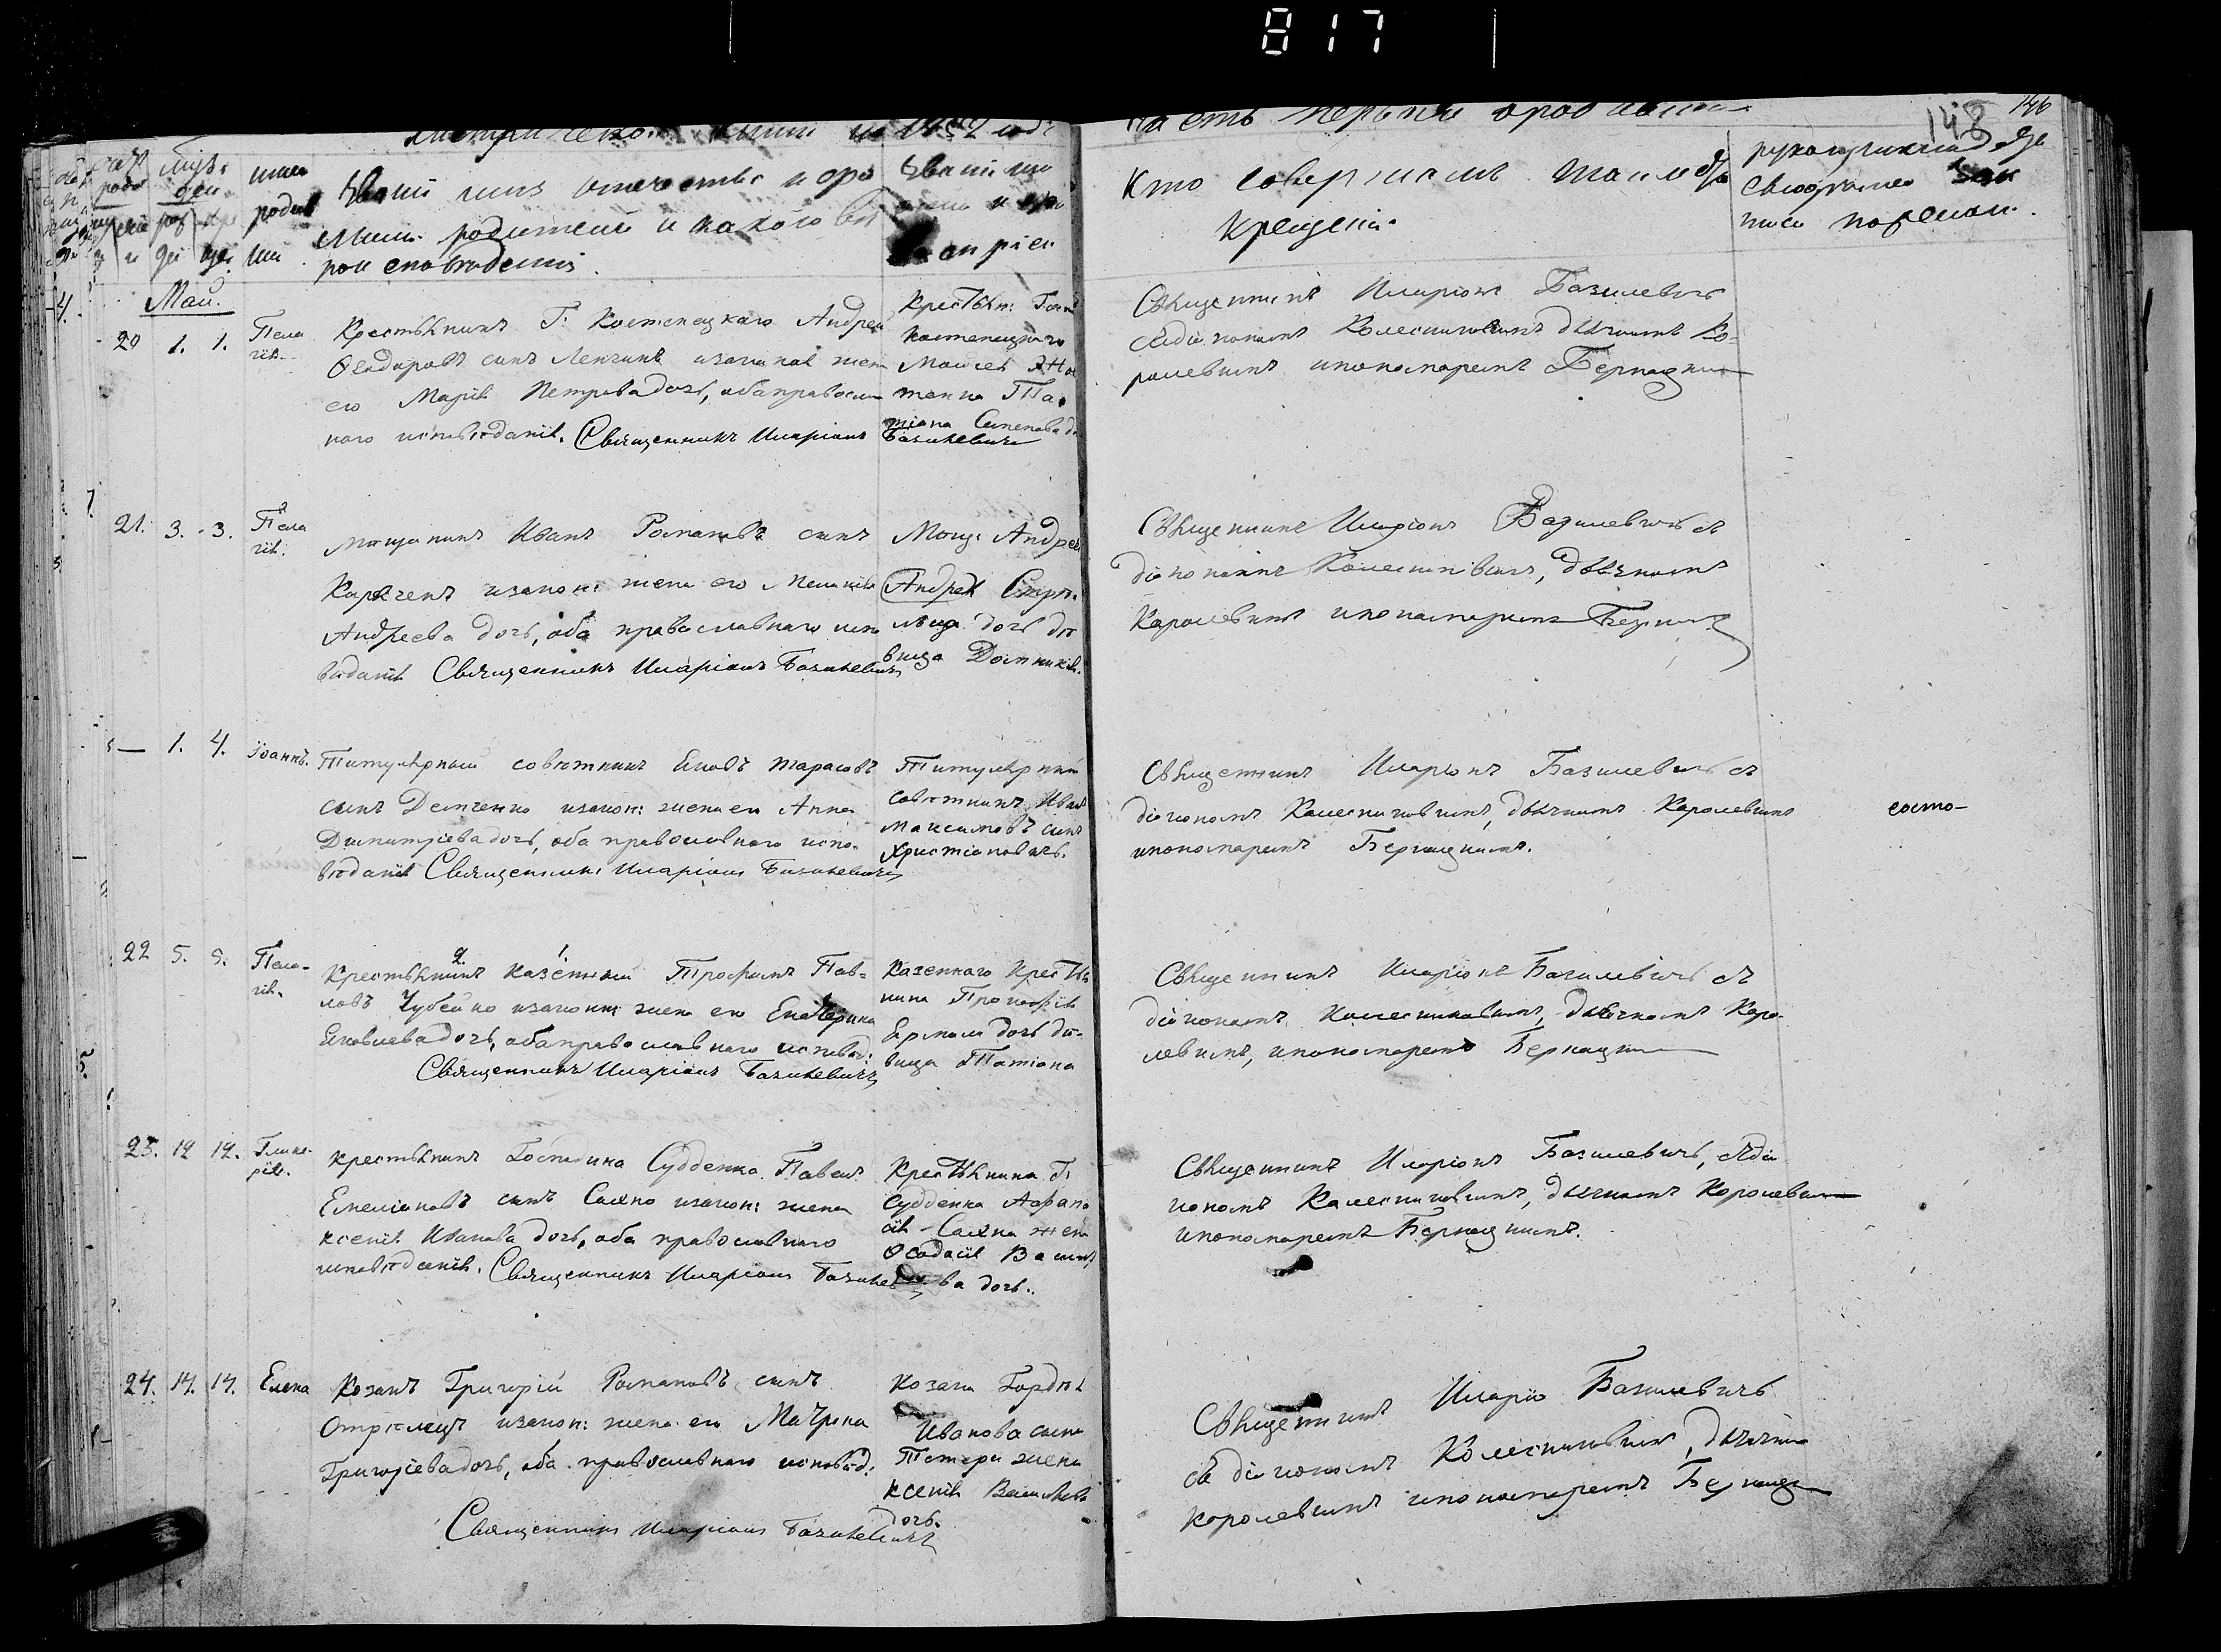 817
146
148
Часть первая о родивши
Званіе имя отечество и фа
милія родителей и какого вѣ
роисповѣданія.
Званіе имя
Кто совершалъ таинство
крещенія.
рукоприкладство
Май.
20 1. 1. Пела
гія.
Крестьянинъ Г. Костенецкаго Андрей
Ѳеодоровъ сынъ Ленчикъ изаконная жена
его Марія Петрова дочь, оба православ
наго исповѣданія. Священникъ Иларіонъ Базилевичъ
Крестьян: Госп
Костенецкаго
Моисея
жена Та
тіана Семенова до
Священникъ Иларіонъ Базилевичъ
съ діакономъ Колесниковымъ дьячкомъ Ко=
ролевымъ и пономаремъ Бернацким
21. 3. 3. Пела
гія.
Мѣщанинъ Иванъ Романовъ сынъ
изакон: жена его Меланія
Андреева дочь, оба православнаго испо
вѣданія Священникъ Иларіонъ Базилевичъ
Мѣщ: Андрея
Андрея Стрѣ
льца дочь дѣ
вица Домникія.
Священникъ Иларіонъ Базилевичъ съ
діакономъ Колесниковымъ, дьячкомъ
Королевымъ и пономаремъ Бернац
— 1. 4. Іоаннъ.
Титулярный совѣтникъ Яковъ Тарасовъ
сынъ Демченко изакон: жена его Анна
Димитріева дочь, оба православнаго испо-
вѣданія Священникъ Иларіонъ Базилевичъ
Титулярный
совѣтникъ Иванъ
Максимовъ сынъ
Христіановичъ.
Священникъ Иларіонъ Базилевичъ съ
діакономъ Колесниковымъ, дьячкомъ Королевымъ
и пономаремъ Бернацкимъ.
состо-
22 5. 5. Пела-
гія.
2. 1.
Крестьянинъ казенный Трофимъ Пав=
ловъ Чубейко изаконн жена его Екатерина
Яковлева дочь, оба православнаго исповѣд:
Священникъ Иларіонъ Базилевичъ
Казеннаго Крестья
нина Прокофія
Ермола дочь дѣ-
вица Татіана
Священникъ Иларіонъ Базилевичъ съ
діакономъ Колесниковымъ, дьячкомъ Коро-
левымъ, и пономаремъ Бернацким
23. 12 12. Глике-
рія.
Крестьянинъ Господина Судденка Павелъ
Емеліановъ сынъ Саенко изакон: жена
Ксенія Иванова дочь, оба православнаго
исповѣданія. Священникъ Иларіонъ Базилевичъ
Крестьянина Г.
Судденка Афана
сія Саенка жена
Ѳеодосія Василь
ева дочь.
Священникъ Иларіонъ Базилевичъ, съ діа
кономъ Колесниковымъ, дьячкомъ Королевым
и пономаремъ Бернацкимъ.
24. 14. 14. Елена
Козакъ Григорій Романовъ сынъ
Стрѣлецъ изакон: жена его Матрона
Григоріева дочь, оба православнаго исповѣд:
Священникъ Иларіонъ Базилевичъ
Козака Гордѣя
Иванова сына
Тетери жена
Ксенія Васильева
дочь.
Священникъ Иларіо Базилевичъ
съ діакономъ Колесниковымъ, дьячком
Королевымъ и пономаремъ Бернацк